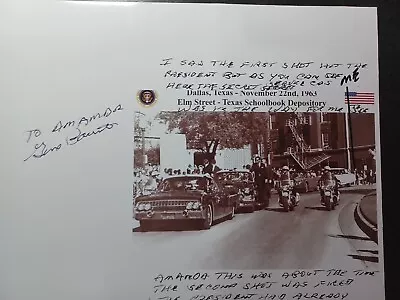 I SAW THE FIRST SHOT HIT THE
PRESIDENT BUT AS YOU CAN SEE ME
HERE THE SECRET SERVICE CAR
Dallas, Texas - November 22nd, 1963
WAS IN THE WAY FOR ME
Elm Street - Texas Schoolbook Depository
TO AMANDA
AMANDA THIS WAS ABOUT THE TIME
THE SECOND SHOT WAS FIRED
THE PRESIDENT HAD ALREADY